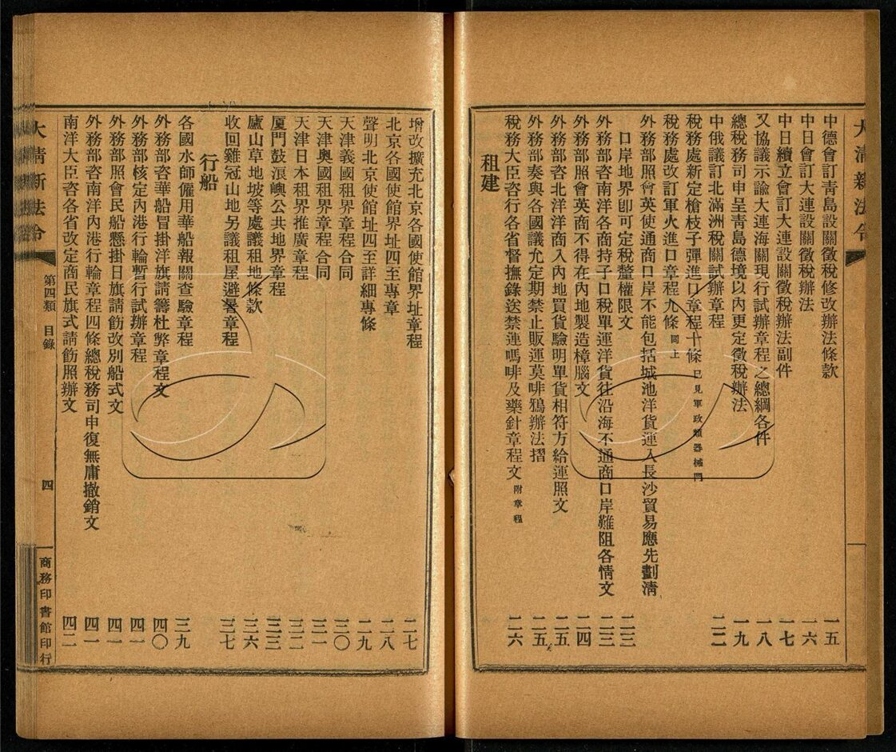 大清新法令
中德會訂青島設關徵稅修改辦法條款 一五
中日會訂大連設關徵稅辦法 一六
中日續立會訂大連設關徵稅辦法副件 一七
又協議示諭大連海關現行試辦章程之總綱各件 一八
總稅務司申呈青島德境以內更定徵稅辦法 一九
中俄議訂北滿洲稅關試辦章程 二二
稅務處新定槍枝子彈進口章程十條 已見軍政類器械門
稅務處改訂軍火進口章程九條 同上
外務部照會英使通商口岸不能包括城池洋貨運入長沙貿易應先劃清
口岸地界卽可定稅釐權限文 二三
外務部咨南洋各商持子口稅單運洋貨往沿海不通商口岸難阻各情文 二三
外務部照會英商不得在內地製造樟腦文 二四
外務部咨北洋洋商入內地買貨驗明單貨相符方給運照文 二五
外務部奏與各國議允定期禁止販運莫啡鴉辦法摺 二五
稅務大臣咨行各省督撫錄送禁運嗎啡及藥針章程文 附章程 二六
租建
增改擴充北京各國使館界址章程 二七
北京各國使館界址四至專章 二八
聲明北京使館址四至詳細專條 二九
天津義國租界章程合同 三〇
天津奧國租界章程合同 三一
天津日本租界推廣章程 三二
厦門鼓浪嶼公共地界章程 三三
廬山草地坡等處議租地條款 三六
收回雞冠山地另議租屋避暑章程 三七
行船
各國水師僱用華船報關查驗章程 三九
外務部咨華船冒掛洋旗請籌杜弊章程文 四〇
外務部核定內港行輪暫行試辦章程 四一
外務部照會民船懸掛日旗請飭改別船式文 四一
外務部咨南洋內港行輪章程四條總稅務司申復無庸撤銷文 四一
南洋大臣咨各省改定商民旗式請飭照辦文 四二
大清新法令
第四類 目錄
四
商務印書館印行